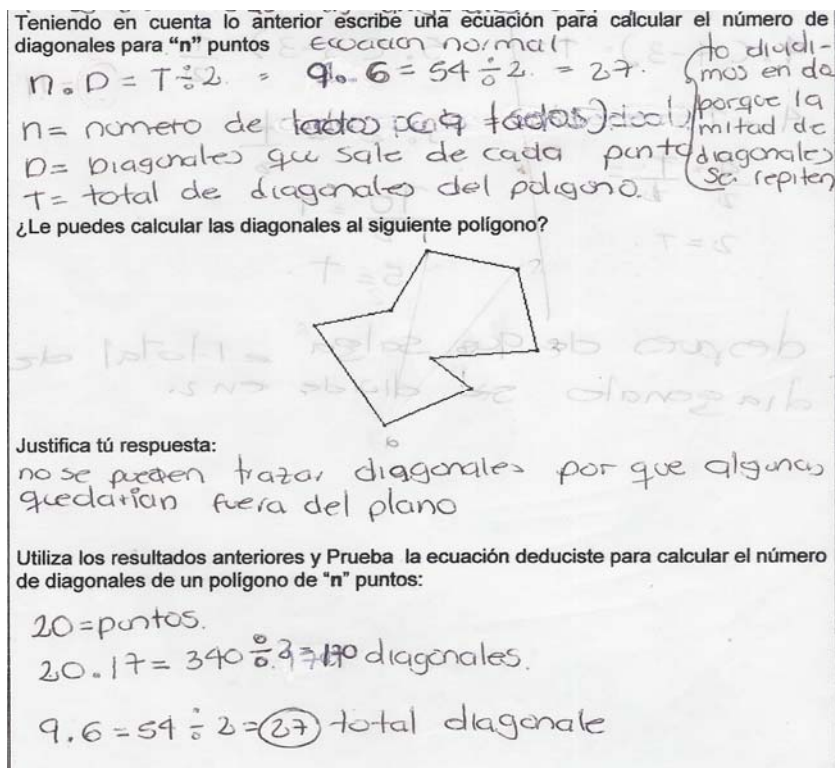 Teniendo en cuenta lo anterior escribe una ecuación para calcular el número de
diagonales para “n” puntos Ecuacion normal
n . D = T ÷ 2. = 9. 6 = 54 ÷ 2. = 27.
to dividi-
mos en do
porque la
mitad de
diagonales
se repiten
n = numero de lados
D = Diagonales que sale de cada punto
T = total de diagonales del poligono.
¿Le puedes calcular las diagonales al siguiente polígono?
Justifica tú respuesta:
no se pueden trazar diagonales por que algunas
quedarian fuera del plano
Utiliza los resultados anteriores y Prueba la ecuación deduciste para calcular el número
de diagonales de un polígono de “n” puntos:
20 = puntos.
20 . 17 = 340 ÷ 170 diagonales.
9 . 6 = 54 ÷ 2 = 27 total diagonale